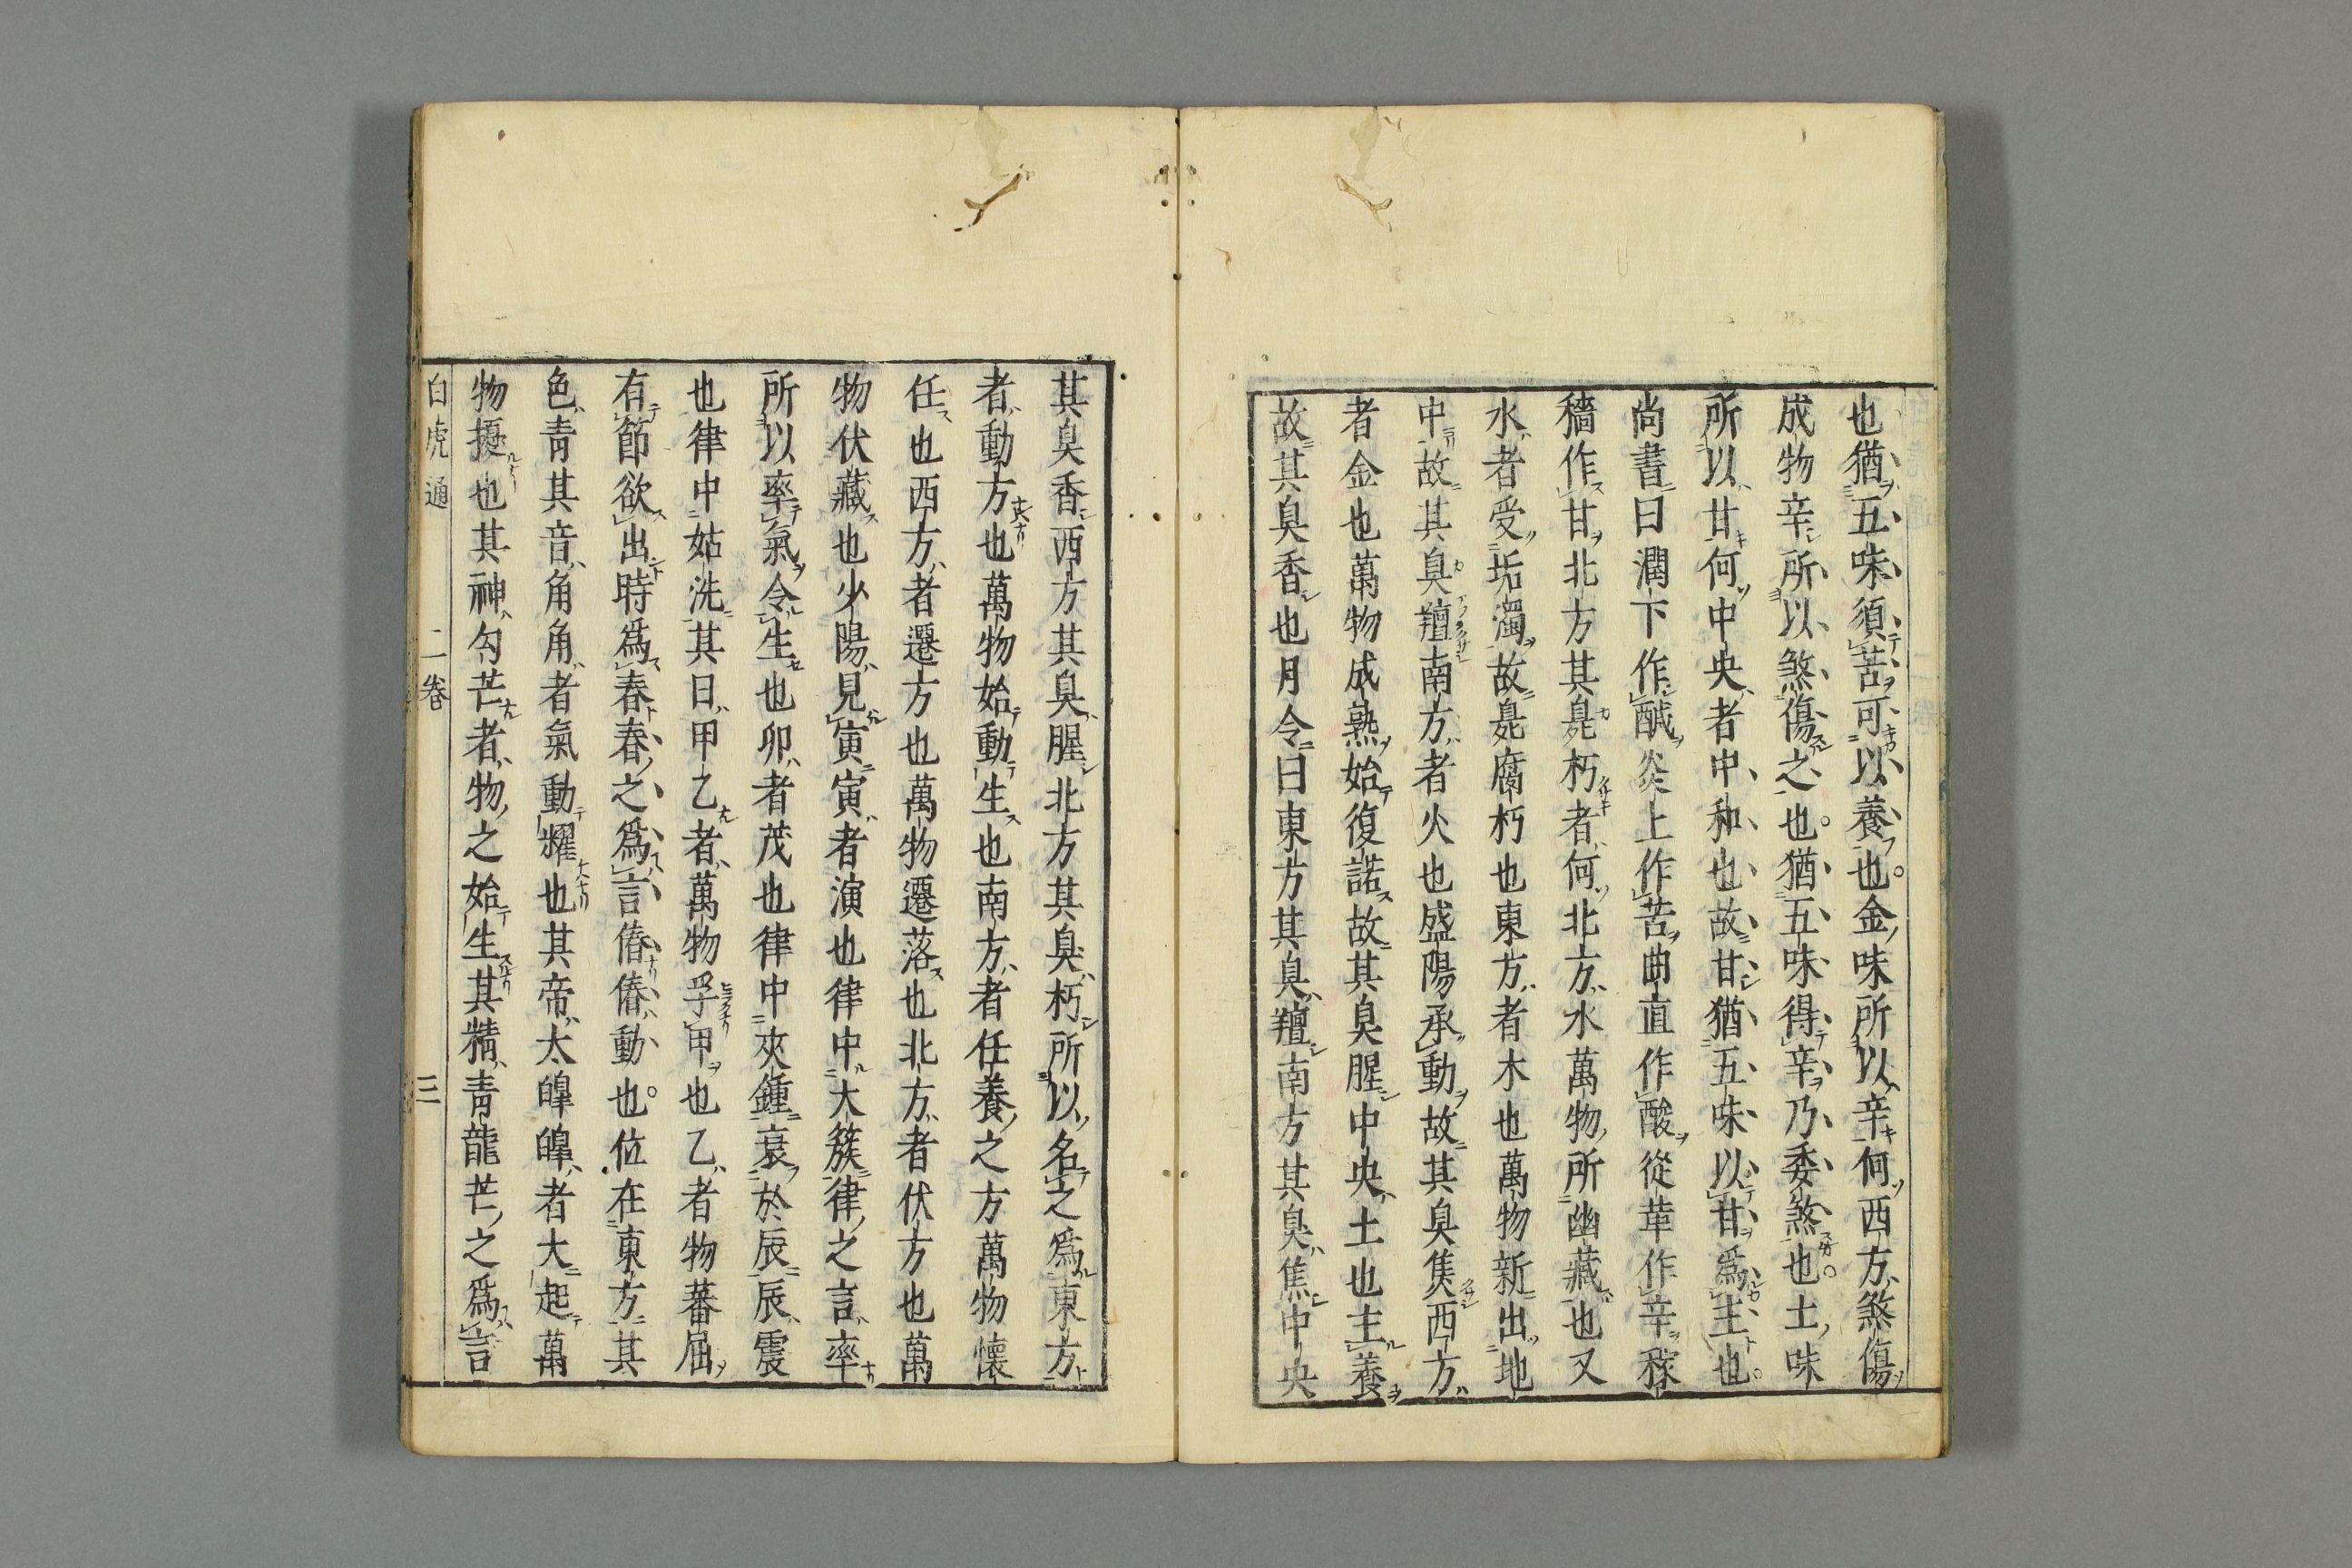 也猶五味須苦可以養也。金味所以辛何西方煞傷
成物辛所以煞傷之也。猶五味得辛乃委煞也。土味
所以甘何中央者中和也故甘猶五味以甘爲主也。
尚書曰潤下作醎炎上作苦曲直作酸從革作辛稼
穡作甘北方其臭朽者何北方水萬物所幽藏也又
水者受垢濁故臭腐朽也東方者木也萬物新出地
中故其臭羶南方者火也盛陽承動故其臭焦西方
者金也萬物成熟始復諾故其臭腥中央土也主養
故其臭香也月令曰東方其臭羶南方其臭焦中央
其臭香西方其臭腥北方其臭朽所以名之爲東方
者動方也萬物始動生也南方者任養之方萬物懐
任也西方者遷方也萬物遷落也北方者伏方也萬
物伏藏也少陽見寅寅者演也律中大簇律之言率
所以率氣令生也卯者茂也律中夾鍾衰於辰辰震
也律中姑洗其日甲乙者萬物孚甲也乙者物蕃屈
有節欲出時爲春春之爲言偆偆動也。位在東方其
色青其音角角者氣動耀也其帝太皥皥者大起萬
物擾也其神勾芒者物之始生其精青龍芒之爲言
白虎通 二卷 三